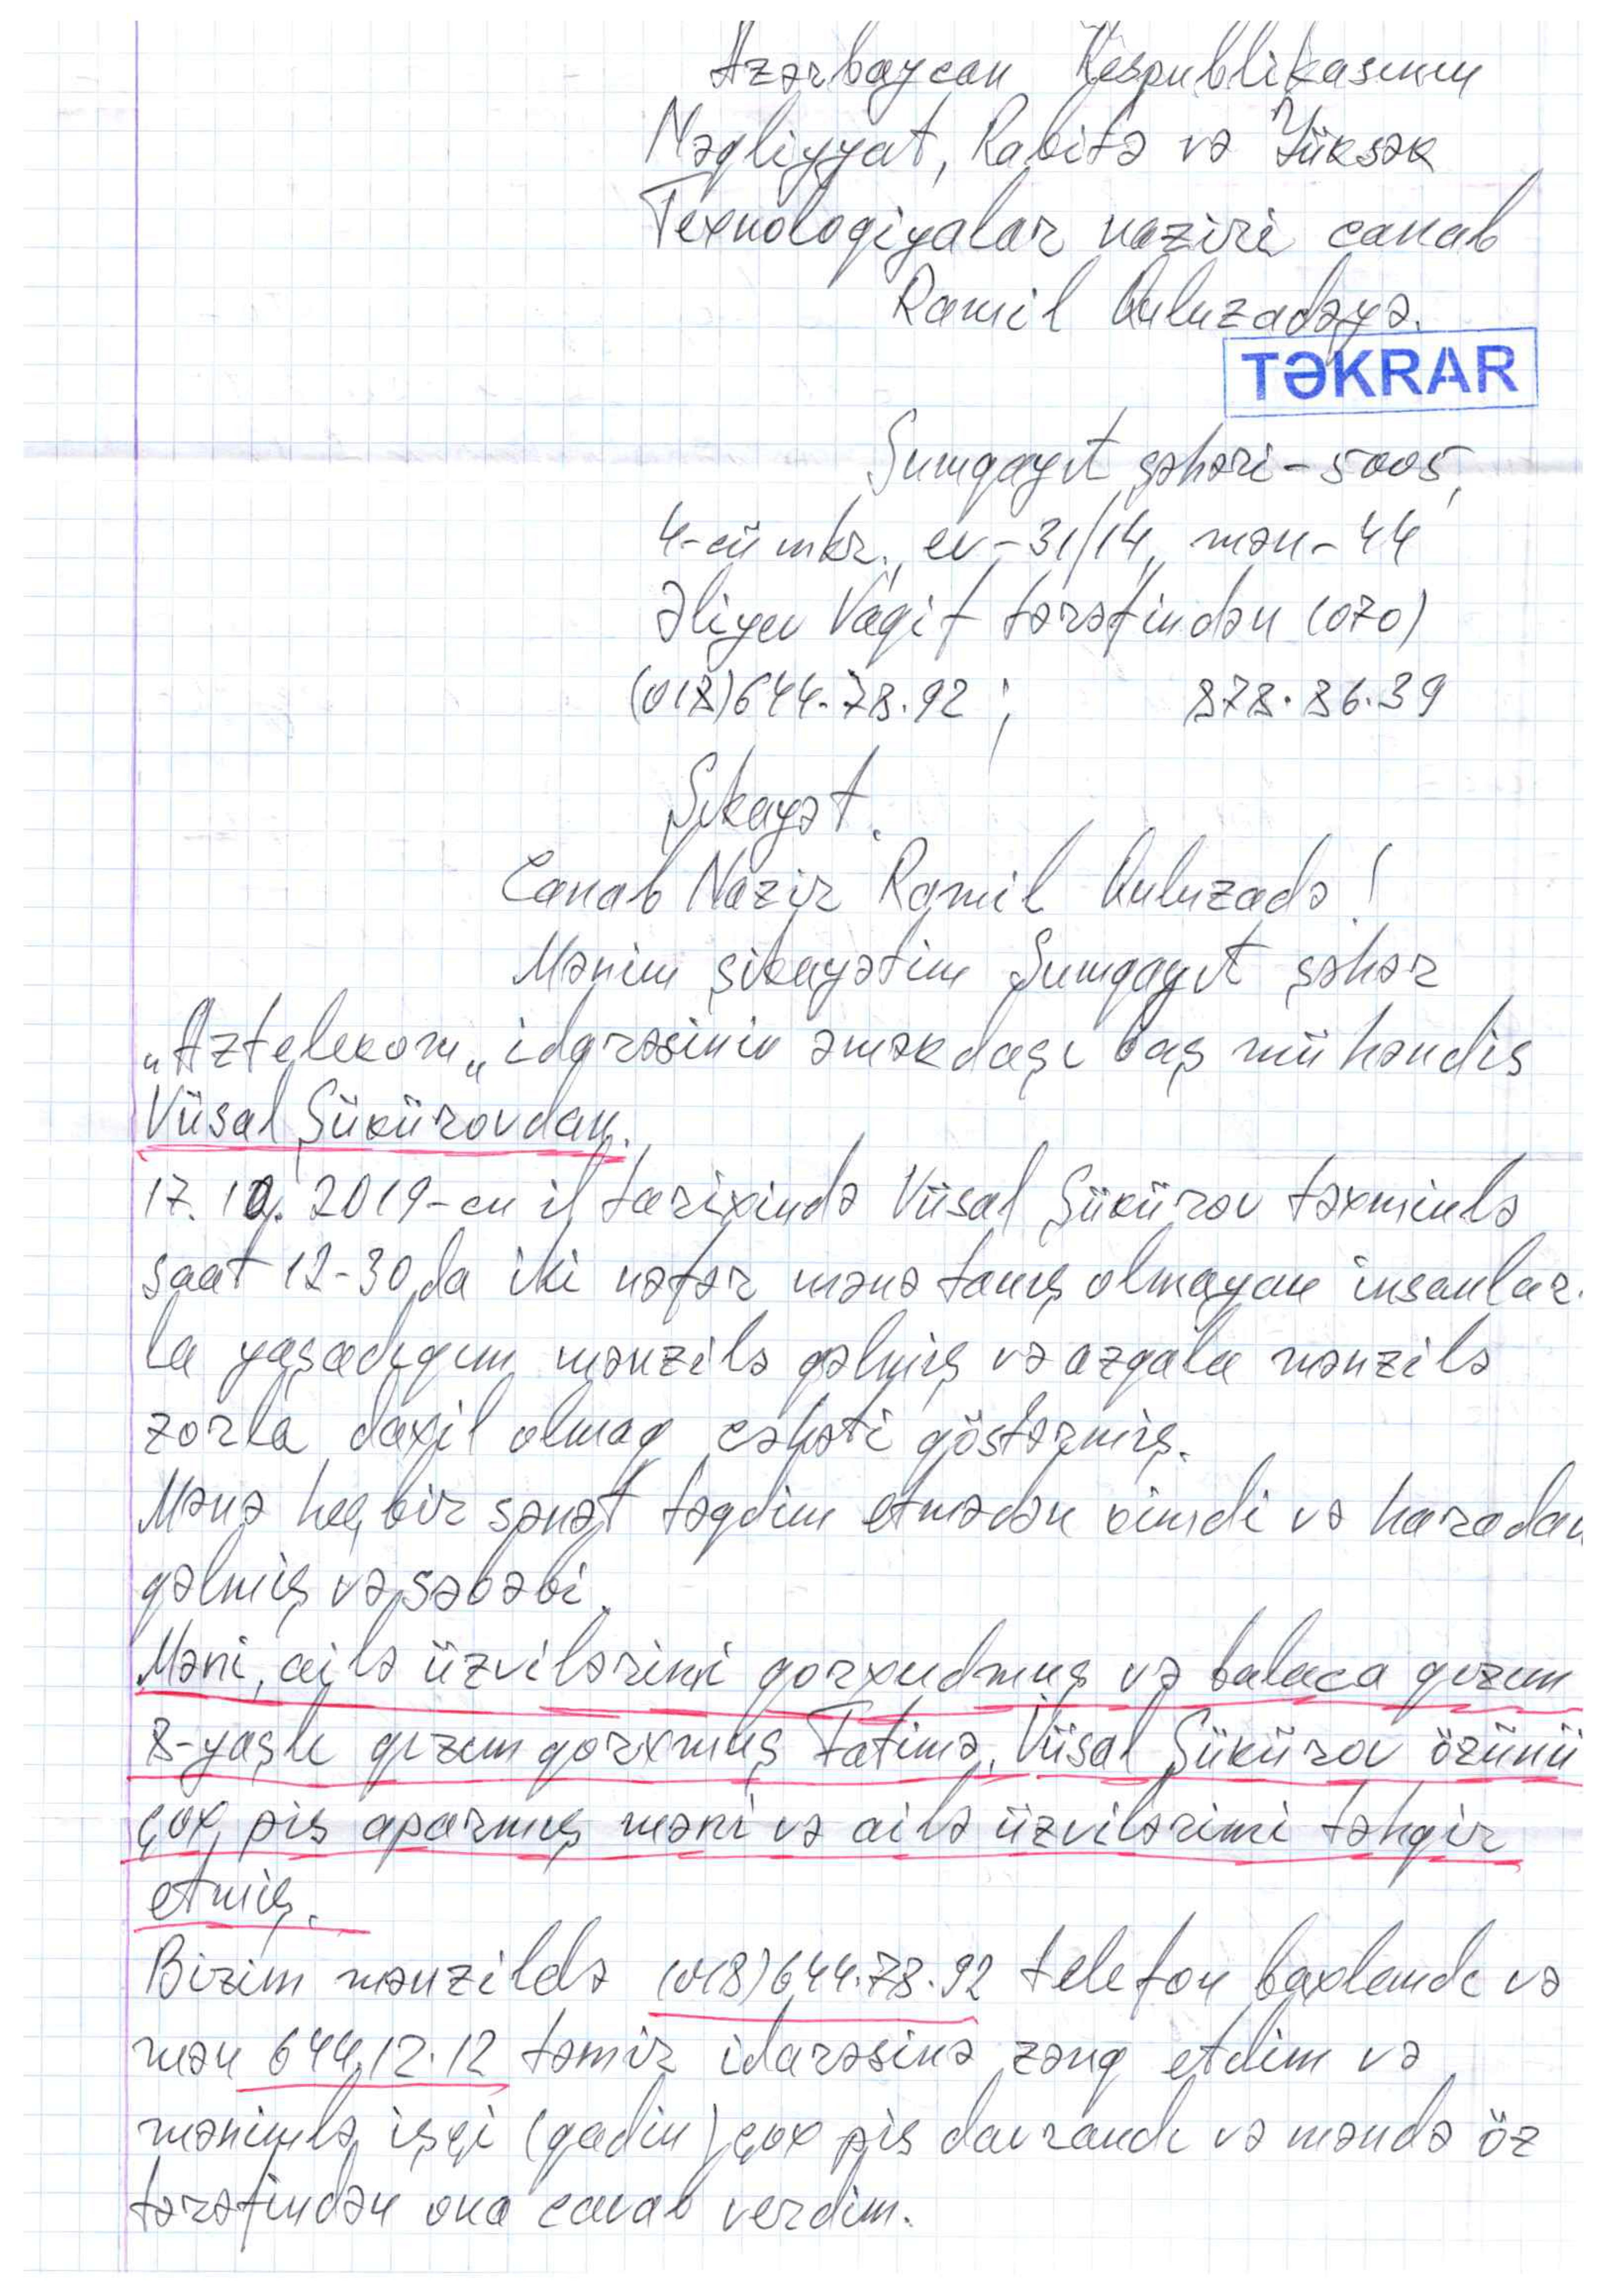 Azərbaycan Respublikasının
Nəqliyyat, Rabitə və Yüksək
Texnologiyalar naziri cənab
Ramil Quluzadəyə.
TƏKRAR
Sumqayıt şəhəri-5005,
4-cü mkr., ev-31/14, mən-44
Əliyev Vaqif tərəfindən (070)
(018)644.78.92; 878.86.39
Şıkayət.
Cənab Nazir Ramil Quluzadə!
Mənim şikayətim Sumqayıt şəhər
„Aztelekom„ idarəsinin əməkdaşı baş mühəndis
Vüsal Şükürovdan.
17.10.2019-cu il tarixində Vüsal Şükürov təxminlə
saat 12-30,da iki nəfər mənə tanış olmayan insanlar-
la yaşadıgım mənzilə gəlmiş və azqala mənzilə
zorla daxil olmaq cəhəti göstərmiş.
Mənə heç bir sənət təqdim etmədən kimdi və haradan
gəlmiş və səbəbi.
Məni, ailə üzvilərimi qorxudmuş və balaca qızım
8-yaşlı qızım qorxmuş Fatimə, Vüsal Şükürov özünü
çox pis aparmış məni və ailə üzvilərimi təhqir
etmiş.
Bizim mənzildə (018)644.78.92 telefon baxlandı və
mən 644.12.12 təmir idarəsinə zəng etdim və
mənimlə işçi (qadin) çox pis davrandı və məndə öz
tərəfindən ona cavab verdim.